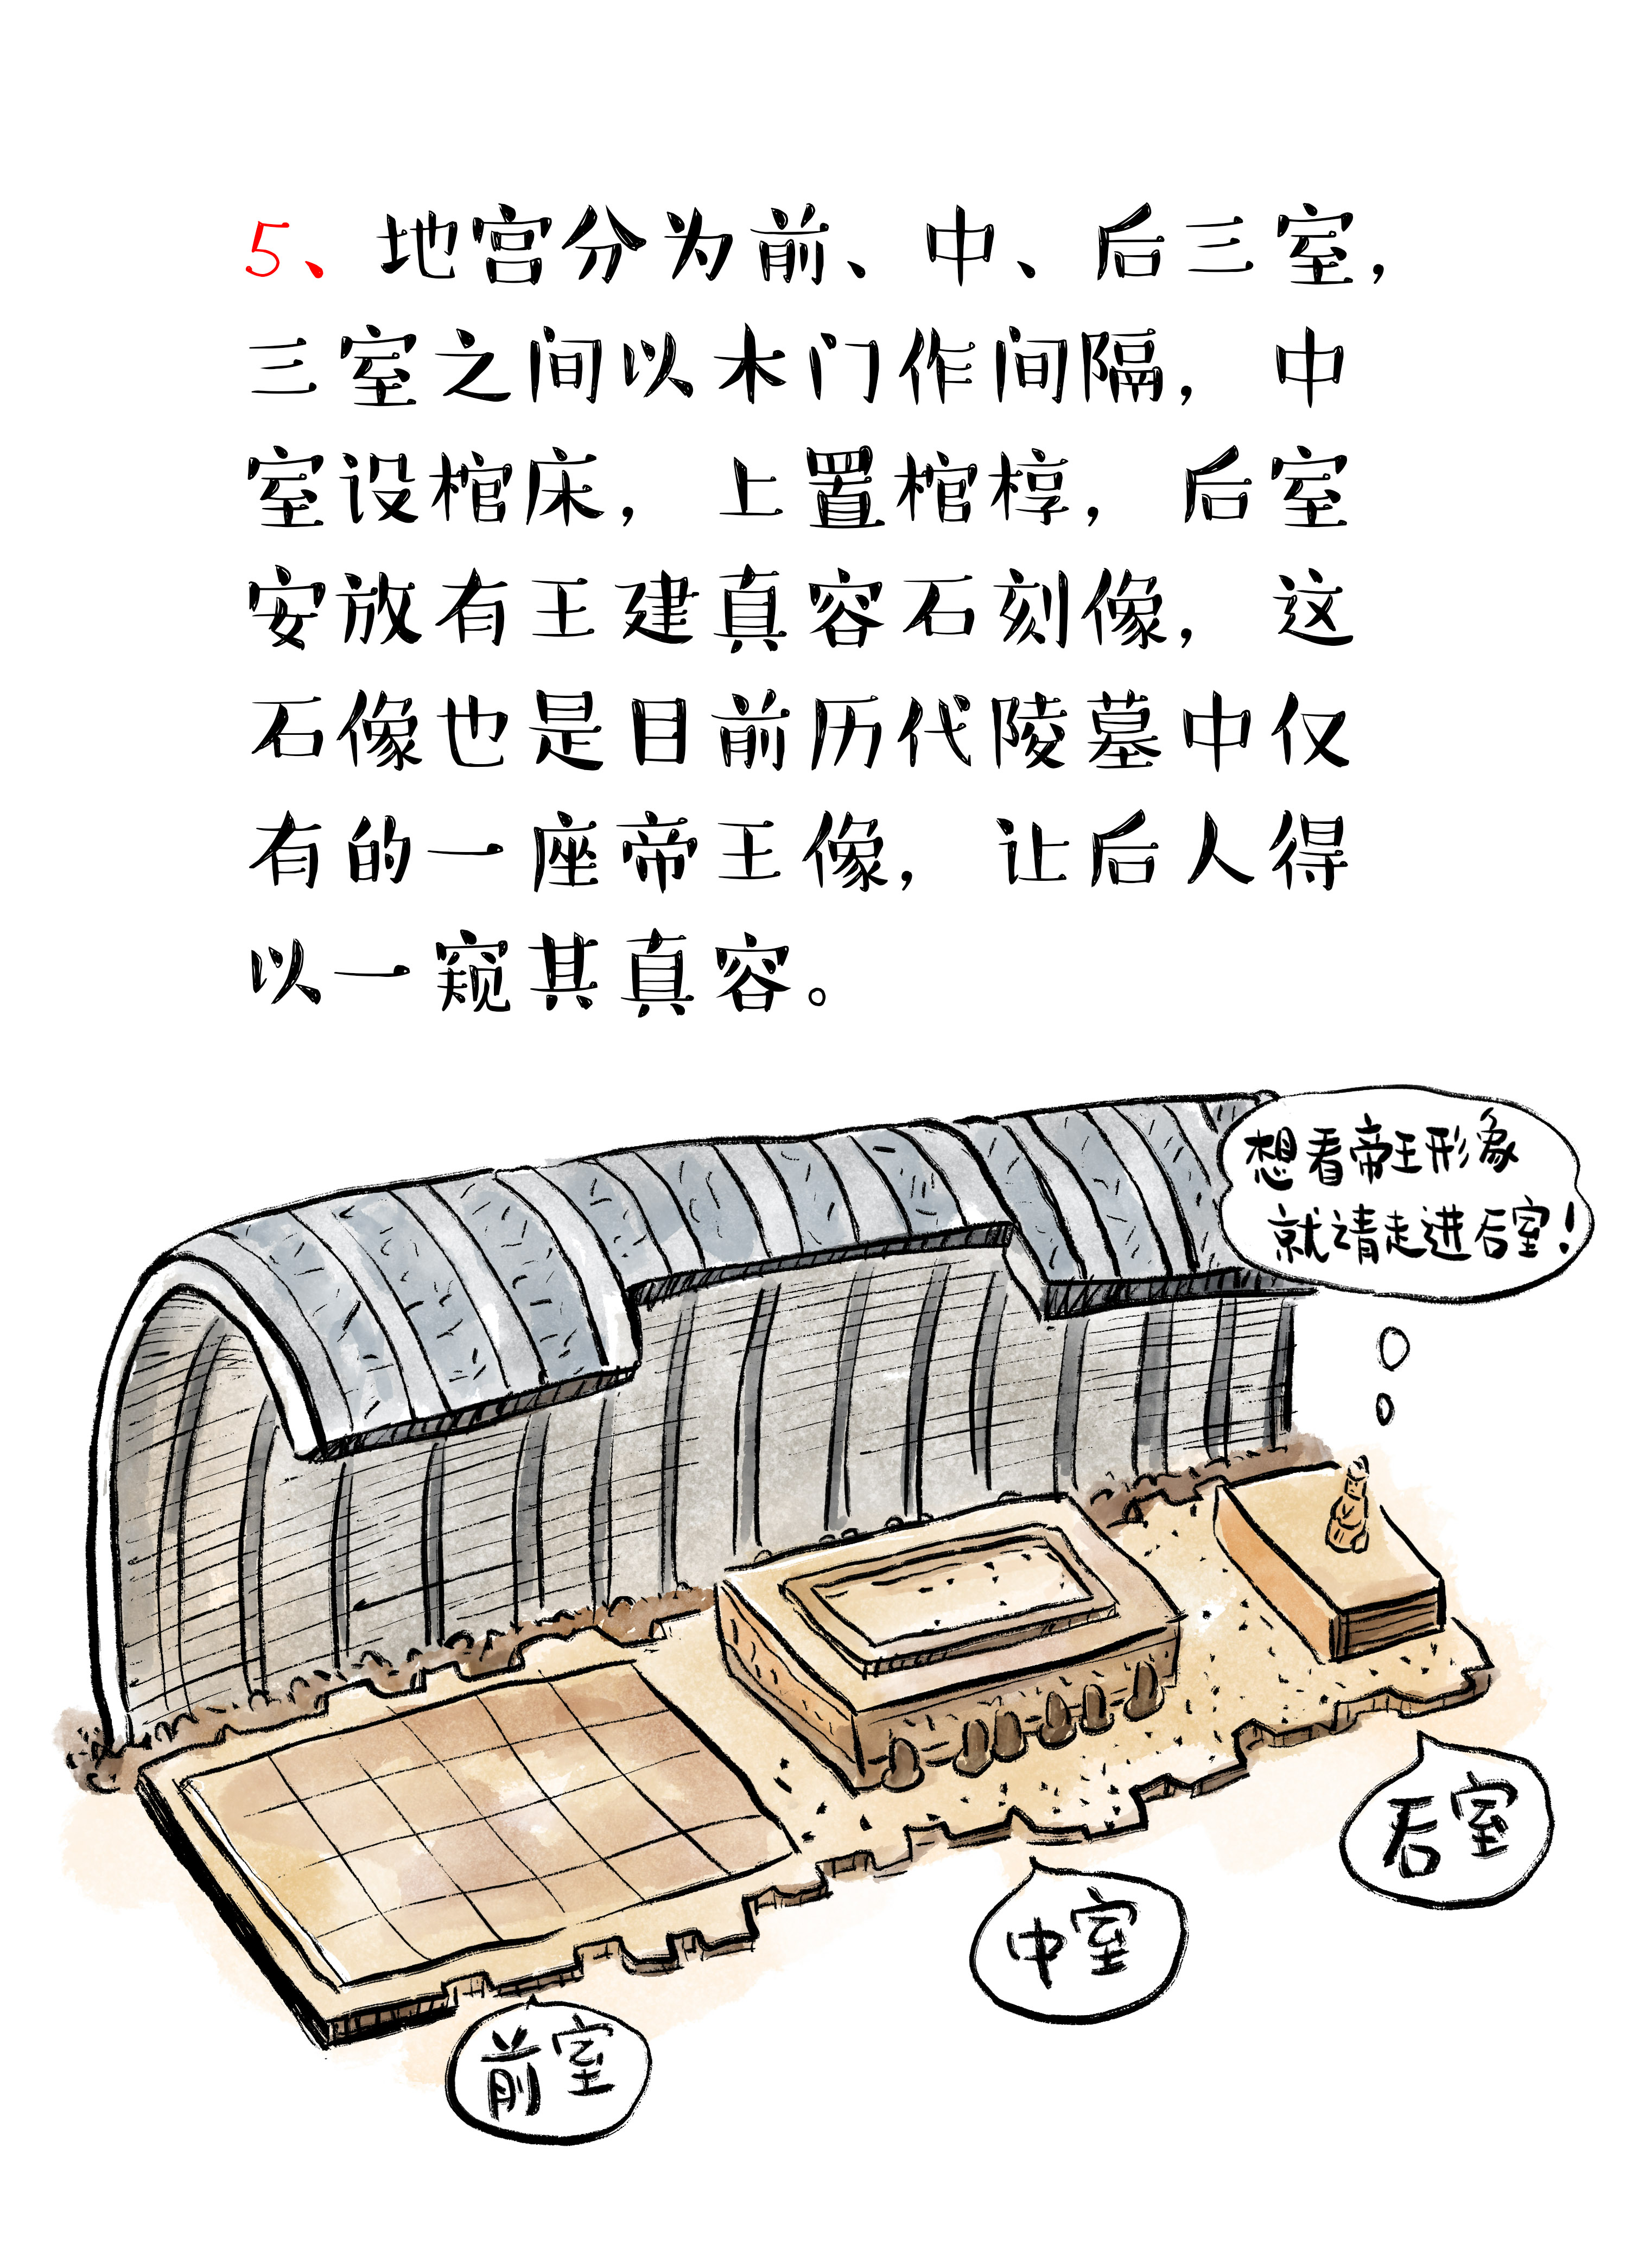 5、地宫分为前、中、后三室，
三室之间以木门作间隔，中
室设棺床，上置棺椁，后室
安放有王建真容石刻像，这
石像也是目前历代陵墓中仅
有的一座帝王像，让后人得
以一窥其真容。
想看帝王形象
就请走进后室！
后室
中室
前室